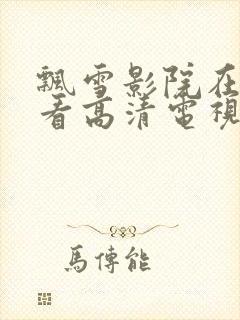 飄雪影院在
看高清電視
馬傳能